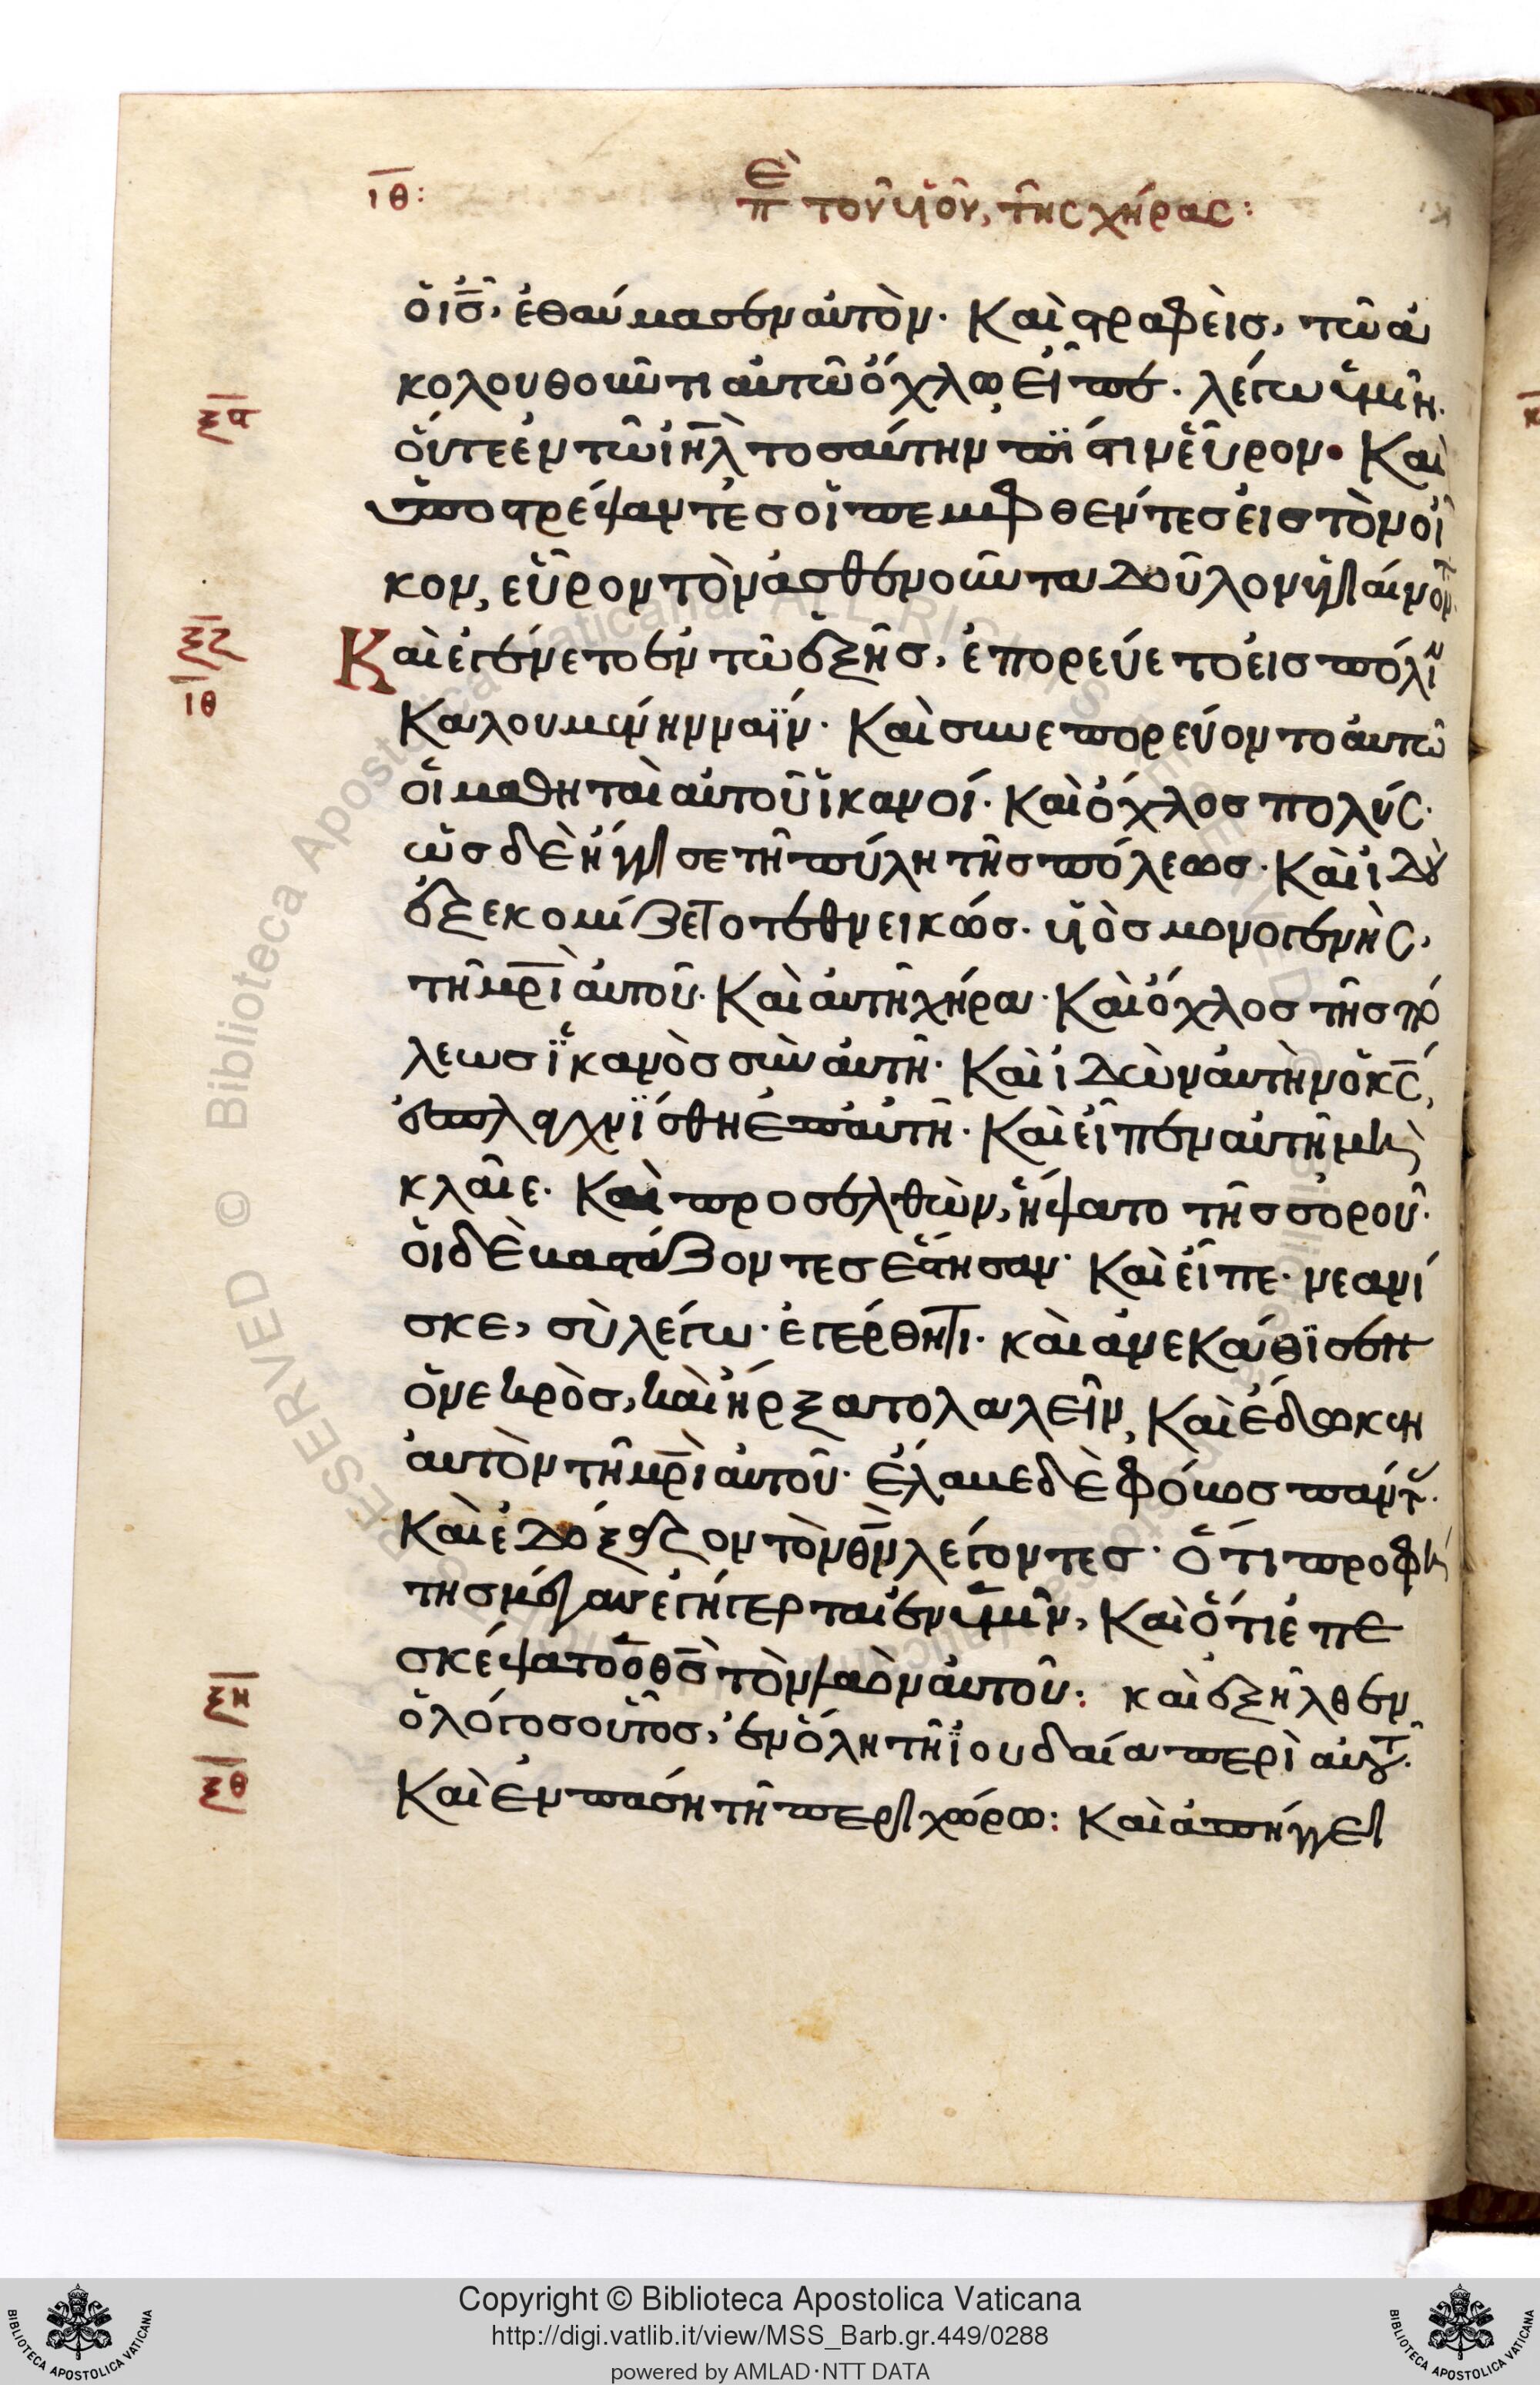 ιθ: πὲ τὸν υἱὸν, τῆς χήρας:
ὁ ις, ἐθαύμασεν αὐτόν· Καὶ στραφεὶς, τῶ ἀ
κολουθοῦντι αὐτῶ ὄχλω εἶπε· λέγω ὑμῖν·
ξϛ οὔτε ἐν τῶ ιηλ τοσαύτην πίστιν εὗρον· Καὶ
ὑποστρέψαντες οἱ πεμφθέντες εἰς τὸν οἶ
κον, εὗρον τὸν ἀσθενοῦντα δοῦλον ὑγιαίνοντ
ξζ ιθ Καὶ ἐγένετο ἐν τῶ ἑξῆς, ἐπορεύετο εἰς πόλιν
Καλουμένην ναΐν· Καὶ συνεπορεύοντο αὐτῶ
οἱ μαθηταὶ αὐτοῦ ἱκανοί· Καὶ ὄχλος πολύς·
ὡς δὲ ἤγγισε τῆ πύλη τῆς πόλεως· Καὶ ἰδοὺ
ἐξεκομίζετο τεθνεικώς· υἱὸς μονογενὴς,
τῆ μρὶ αὐτοῦ· Καὶ αὐτὴ χήρα· Καὶ ὄχλος τῆς πό
λεως ἱκανὸς σὺν αὐτῆ· Καὶ ἰδὼν αὐτὴν ὁ κς,
ἐσπλαγχνίσθη ἐπ αὐτῆ· Καὶ εἶπεν αὐτῆ μὴ
κλαῖε· Καὶ προσελθὼν, ἥψατο τῆς σοροῦ·
οἱ δὲ βαστάζοντες ἔστησαν· Καὶ εἶπε· νεανί
σκε, σὺ λέγω· ἐγέρθητι· καὶ ἀνεκάθισεν
ὁ νεκρὸς, καὶ ἤρξατο λαλεῖν, Καὶ ἔδωκεν
αὐτὸν τῆ μρὶ αὐτοῦ· ἔλαβε δὲ φόβος πάντας·
Καὶ ἐδόξαζον τὸν θν λέγοντες· ὅτι προφή
της μέγας ἐγήγερται ἐν ἡμῖν, Καὶ ὅτι ἐπε
σκέψατο ὁ θς τὸν λαὸν αὐτοῦ: καὶ ἐξῆλθεν
ξη ὁ λόγος οὗτος, ἐν ὅλη τῆ ἰουδαία περὶ αὐτοῦ·
ξθ Καὶ ἐν πάση τῆ περιχώρω: Καὶ ἀπήγγει
Copyright © Biblioteca Apostolica Vaticana
http://digi.vatlib.it/view/MSS_Barb.gr.449/0288
powered by AMLAD·NTT DATA